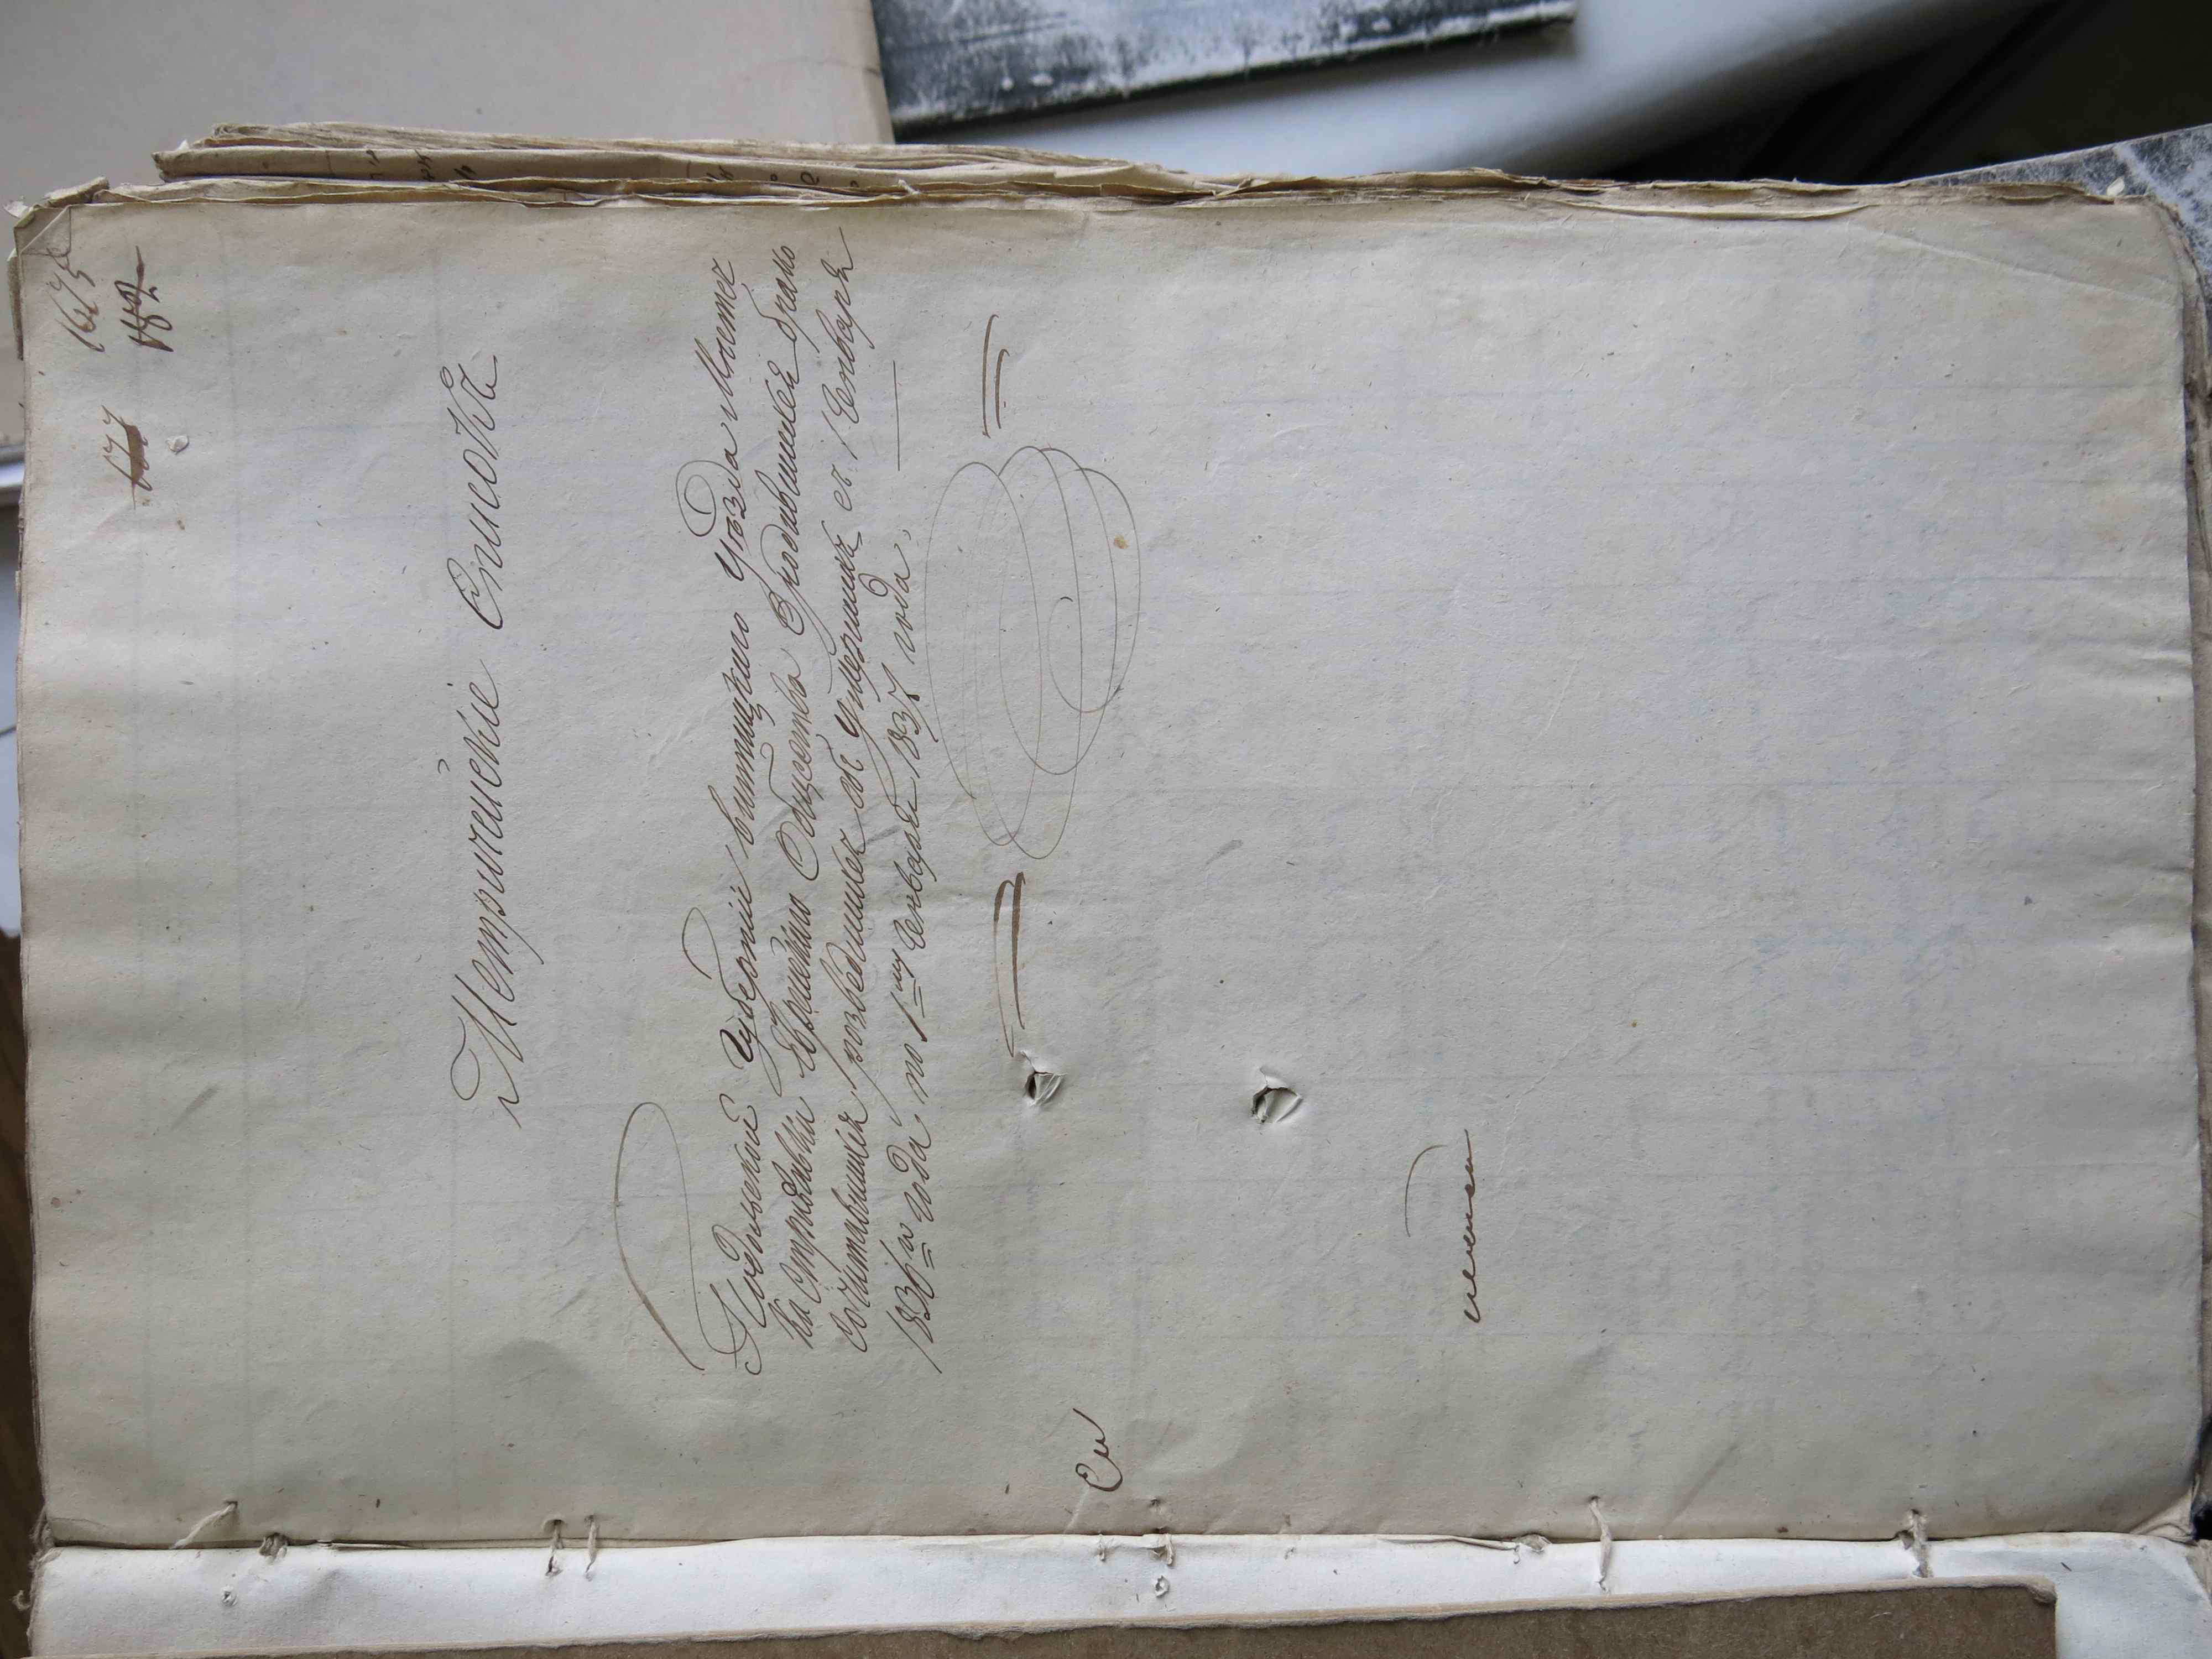 1675
677
Метрическіе Списокъ
Подольской Губерніи винницкаго Уѣзда Мѣстеч
ка Стрижавки Еврейскаго Общества Зродившихся бракο
Сочитавшихся, розведшихся об Умершихъ съ 1 Генваря
1836го года. по 1му Генваря 1837 года.